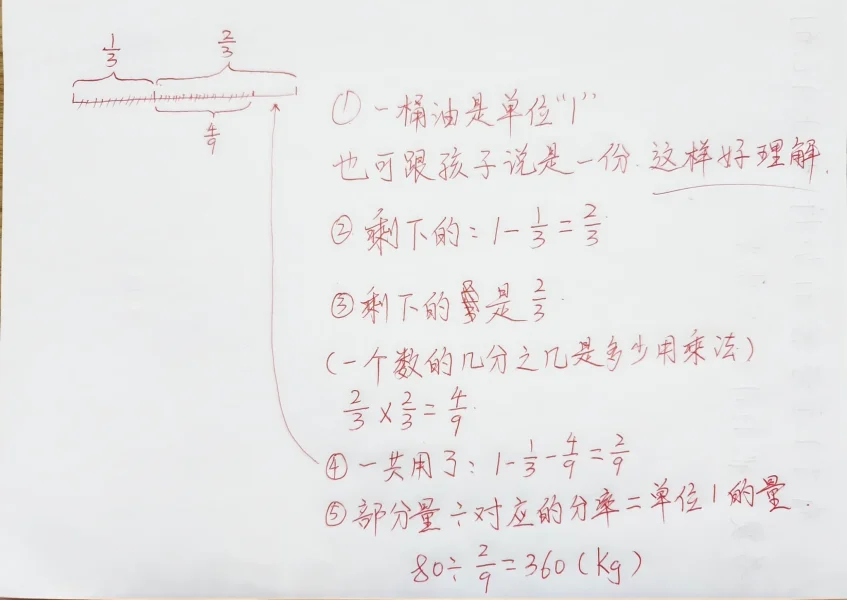 1/3 2/3
4/9
① 一桶油是单位“1”
也可跟孩子说是一份.这样好理解.
② 剩下的:1-1/3=2/3
③ 剩下的是2/3.
(一个数的几分之几是多少用乘法)
2/3×2/3=4/9.
④ 一共用了:1-1/3-4/9=2/9
⑤ 部分量÷对应的分率=单位1的量.
80÷2/9=360(Kg)